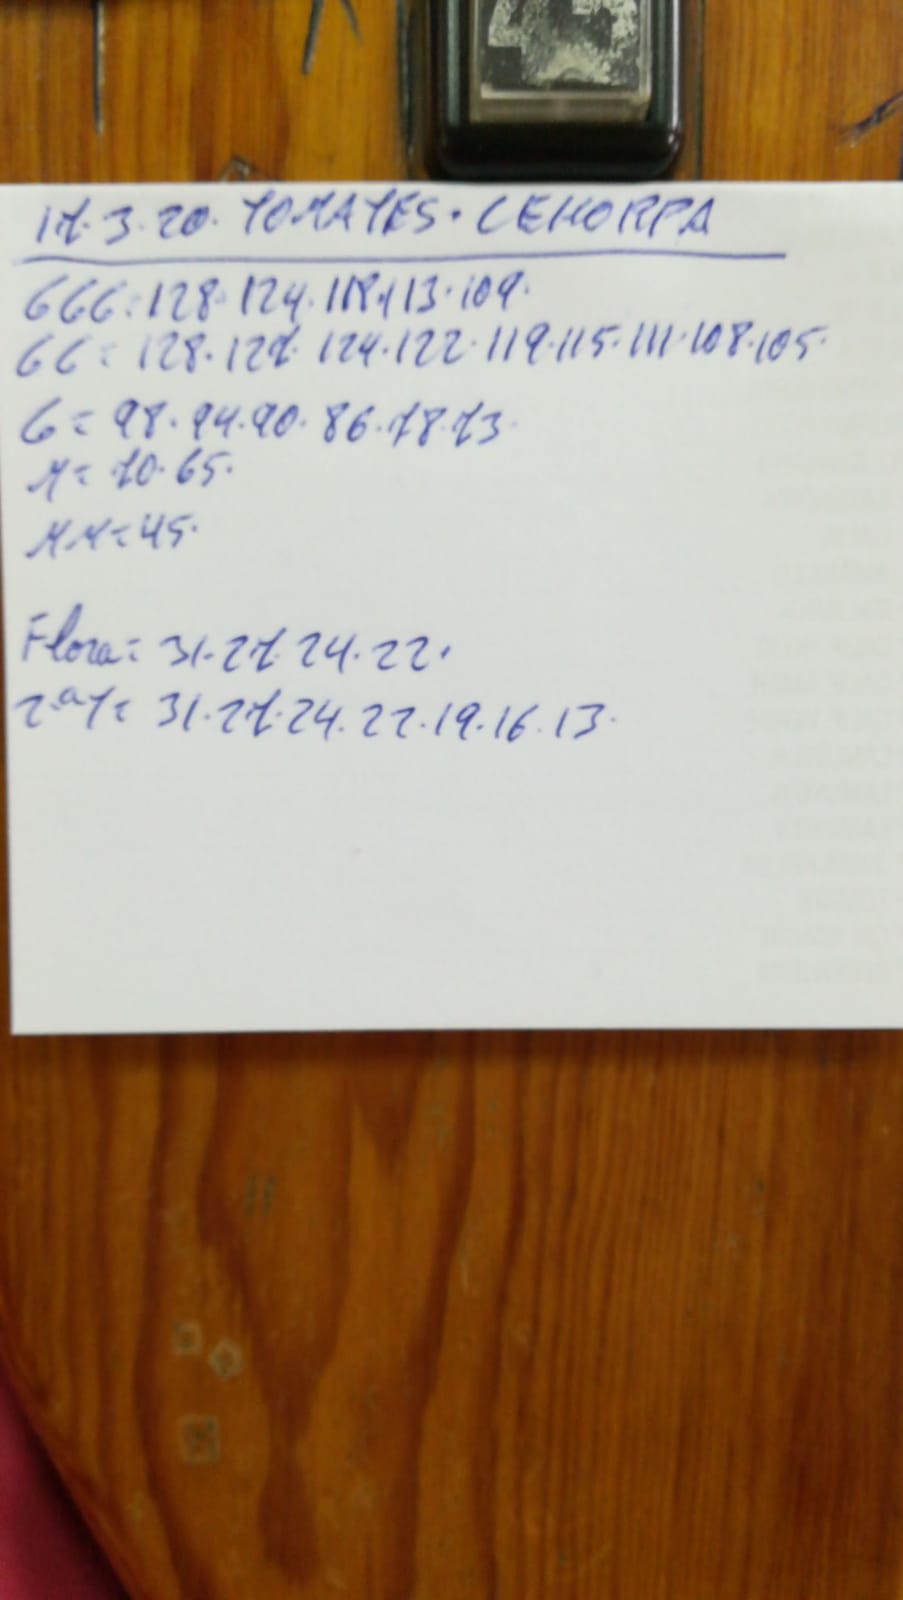 17.3.20. TOMATES. CEHORPA
GGG=128.124.118.113.109.
GG= 128.127.124.122.119.115.111.108.105.
G= 98.94.90.86.78.73.
M= 70.65.
MM=45.
Flora= 31.27.24.22.
2ªT= 31.27.24.22.19.16.13.